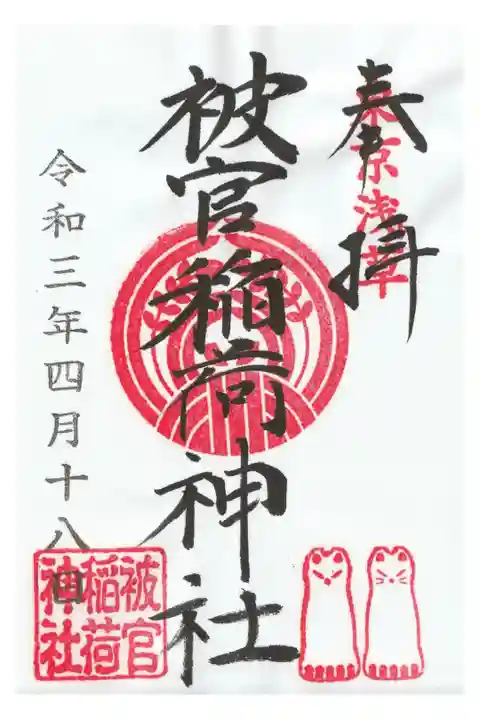 奉拝
東京浅草
被官稲荷神社
令和三年四月十八日
被官
稲荷
神社